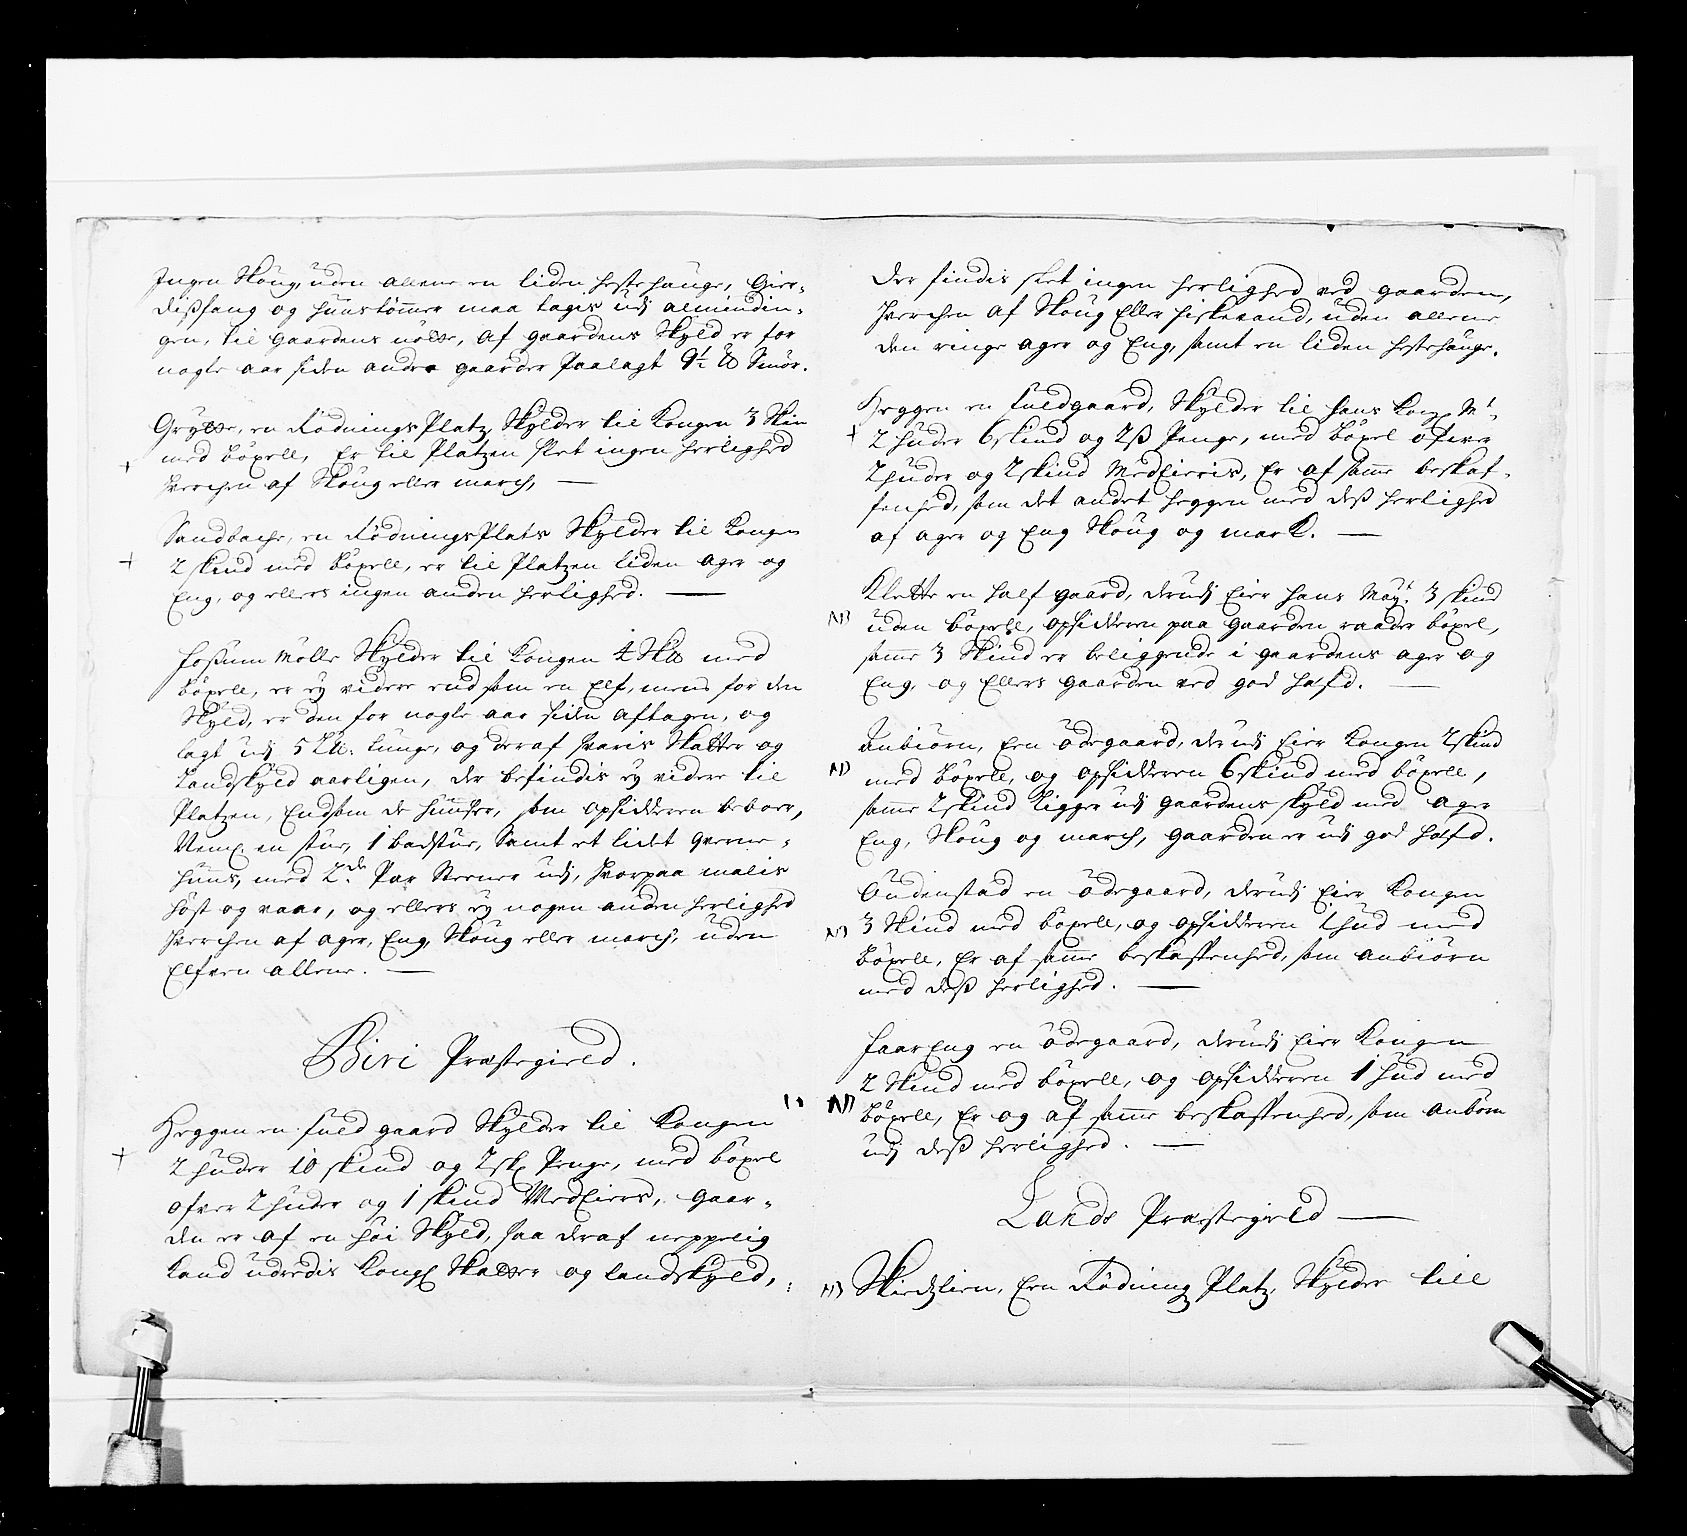 Ingen Skoug, uden allene en liden hestehauge, Gier-
dißfang og huustømmer maa tagis udj almindin-
gen, til gaardens nøtte, af gaardens Skyld er for
nogle aar siden andre gaarder paalagt 9½ ℔ Smør.
Grytte, en RødningsPlatz, Skylder til Kongen 3 Skin
med böxell, Er til Platzen slet ingen herlighed
hverchen af Skoug eller march, —
Sandbache, en RødningsPlats Skylder til Kongen
2 skind med böxell, er til Platzen liden ager og
Eng, og ellers ingen anden herlighed. —
Foßum Mølle Skylder til Kongen 4 Sk℔ med
böxell, er ey videre end som en Elf, mens for den
Skyld, er den for nogle aar siden aftagen, og
lagt udj 5 L℔: tunge, og deraf svaris Skatter og
Landskyld aarligen, der befindis ey videre til
Platzen, End som de huuser, som opsidderen beboer,
Neml en stue, 1 badstue, Samt et lidet qverne-
huus, med 2de Par Steener udj, hvorpaa malis
høst og vaar, og ellers ey nogen anden herlighed
hverchen af ager, Eng, Skoug eller march, uden
Elfven allene. —
Biri Præstegield.
Heggen en fuld gaard Skylder til Kongen
2 huder 10 skind og 2 sk Penge, med böxel
ofver 2 huder og 1 skind Medeiers, gaar-
den er af en høi Skyld, saa deraf neppelig
Kand uderedis Kongl Skatter og landskyld,
Der findis slet ingen herlighed ved gaarden,
hverchen af Skoug Eller fiskevand, uden allene
den ringe ager og Eng, samt en liden hestehauge.
Heggen en fuldgaard, Skylder til hans Kong Mt
2 huder 6 skind og 2 ß Penge, med böxel ofver
2 huder og 2 skind Medeieris, Er af samme beskaf-
fenhed, som det andet heggen med deß herlighed
af ager og Eng Skoug og mark. —
Klette en half gaard, derudj Eier hans Mayt 3 skind
uden böxell, opsidderen paa gaarden raader böxel,
samme 3 Skind er beliggende i gaardens ager og
Eng, og Ellers gaarden ved god hæfd. —
Anbiørn, Een ödegaard, derudj Eier Kongen 2 skind
med böxell, og opsidderen 6 skind med böxell,
samme 2 skind Ligger udj gaardens skyld med ager
Eng, Skoug og march, gaarden er udj god hæfd.
Oudenstad en ödegaard, derudj Eier Kongen
3 Skind med böxell, og opsidderen 1 hud med
böxell, Er af samme beskaffenhed, som anbiørn
med deß herlighed. —
Faareng en ödegaard, derudj Eier Kongen
2 Skind med böxell, og opsidderen 1 hud med
böxell, Er og af samme beskaffenhed, som anbørn
udj deß herlighed. —
Lands Præstegield —
Skiedzlien, Een Rødning Platz, Skylder till